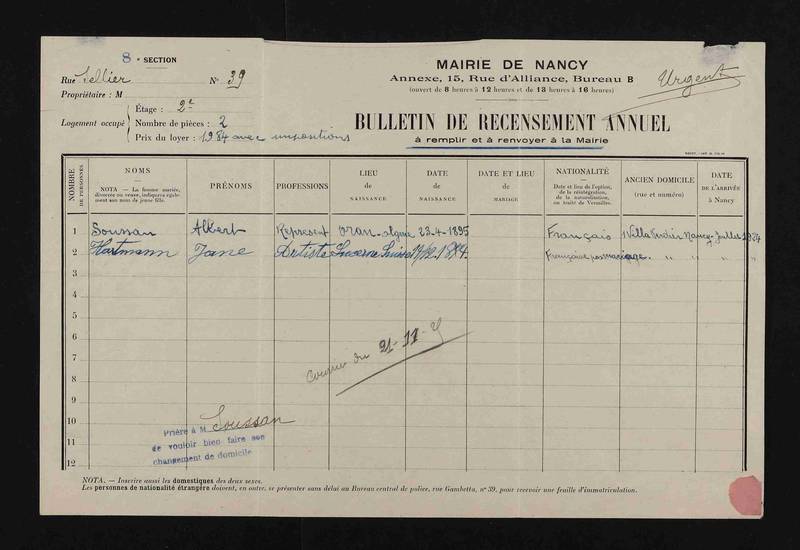 8e SECTION
Rue Sellier N° 39
Propriétaire : M
Logement occupé
Étage : 2e
Nombre de pièces : 2
Prix du loyer : 1984 avec impositions
MAIRIE DE NANCY
Annexe, 15, Rue d'Alliance, Bureau B
(ouvert de 8 heures à 12 heures et de 13 heures à 16 heures)
Urgent
BULLETIN DE RECENSEMENT ANNUEL
à remplir et à renvoyer à la Mairie
NOMBRE DE PERSONNES
NOMS
NOTA — La femme mariée, divorcée ou veuve, indiquera également son nom de jeune fille.
PRÉNOMS
PROFESSIONS
LIEU de NAISSANCE
DATE de NAISSANCE
DATE ET LIEU de MARIAGE
NATIONALITÉ
Date et lieu de l'option, de la réintégration, de la naturalisation, ou traité de Versailles.
ANCIEN DOMICILE (rue et numéro)
DATE DE L'ARRIVÉE à Nancy
1 Soussan Albert Represent Oran - Algérie 23.4.1895 Français Nancy - Juillet 1934
2 Hartmann Jane Artiste Lucerne Suisse Française par mariage. " " " "
3
4
5
6
7
8
9
10
11
12
Courrier du 21-11-
Prière à M Soussan
de vouloir bien faire son
changement de domicile
NOTA. — Inscrire aussi les domestiques des deux sexes.
Les personnes de nationalité étrangère doivent, en outre, se présenter sans délai au Bureau central de police, rue Gambetta, n° 39, pour recevoir une feuille d'immatriculation.